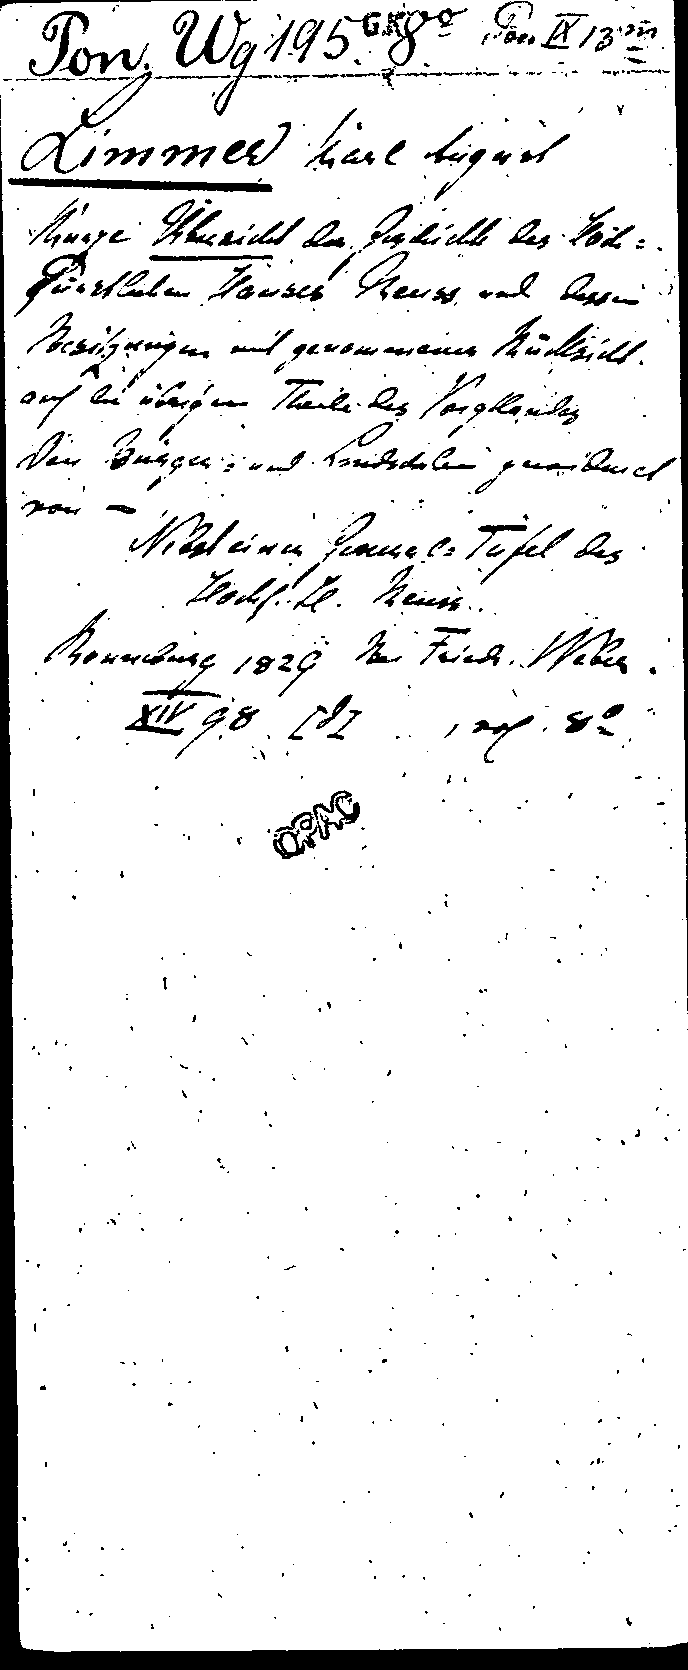 Pon. Wg 195. G.K. 8°° Pon IX 13 m
Limmer Karl August
Kurze Übersicht der Geschichte des Hoch=
Fürstlichen Hauses Reuss und dessen
Besitzungen mit genommener Rücksicht
auf die übrigen Theile des Voigtlandes
Den Bürger= und Landschulen gewidmet
von —
Nebst einer General=Tafel des
Hochf. H. Reuss.
Ronneburg 1829 Bei Friedr. Weber.
XIV 98 8°
OPAC